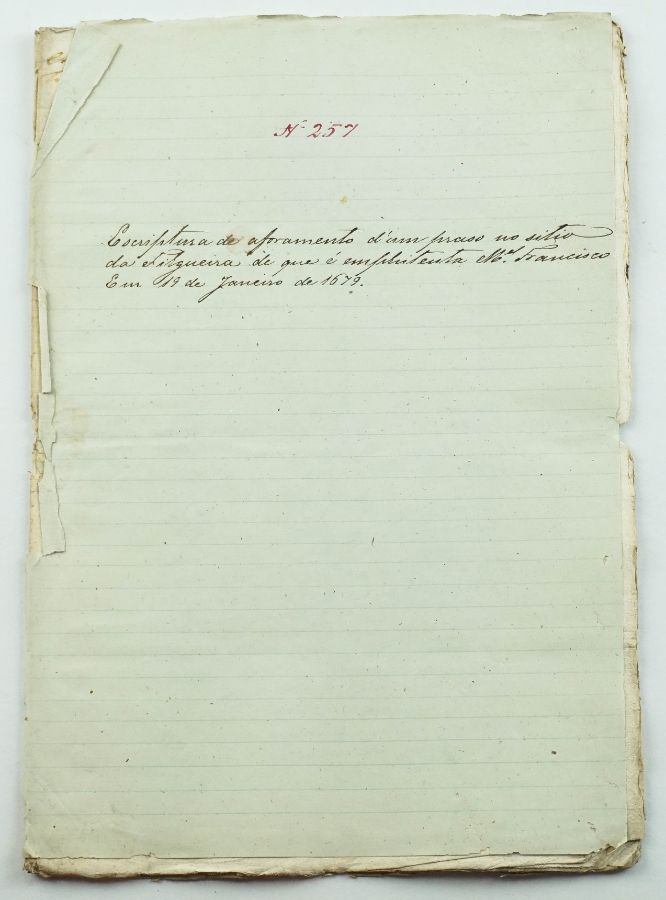 Nº 257
Escriptura de aforamento d'um praso no sitio
da Filgueira de que é emphiteuta M.el Francisco
Em 19 de Janeiro de 1679.